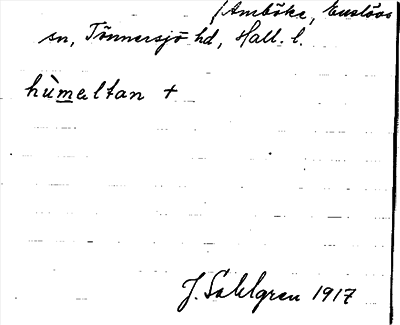 (Amböke, Enslövs
sn, Tönnersjö hd, Hall. l.
hùmaltan +
J. Sahlgren 1917